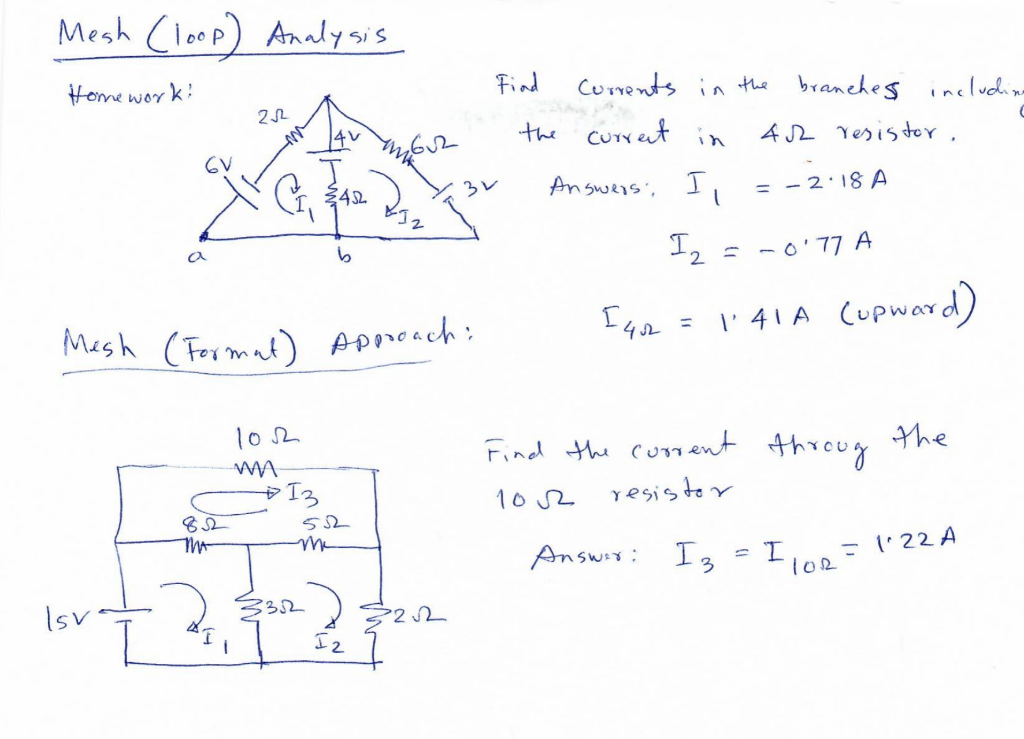 Mesh (loop) Analysis
Homework:
Find currents in the branches including
the current in 4Ω resistor.
2Ω
4V
6Ω
6V
I1
4Ω
I2
3V
a
b
Answers: I1 = -2.18A
I2 = -0.77 A
I4Ω = 1.41A (upward)
Mesh (Format) Approach:
10Ω
I3
8Ω
5Ω
15V
I1
3Ω
I2
2Ω
Find the current throug the
10Ω resistor
Answer: I3 = I10Ω = 1.22A